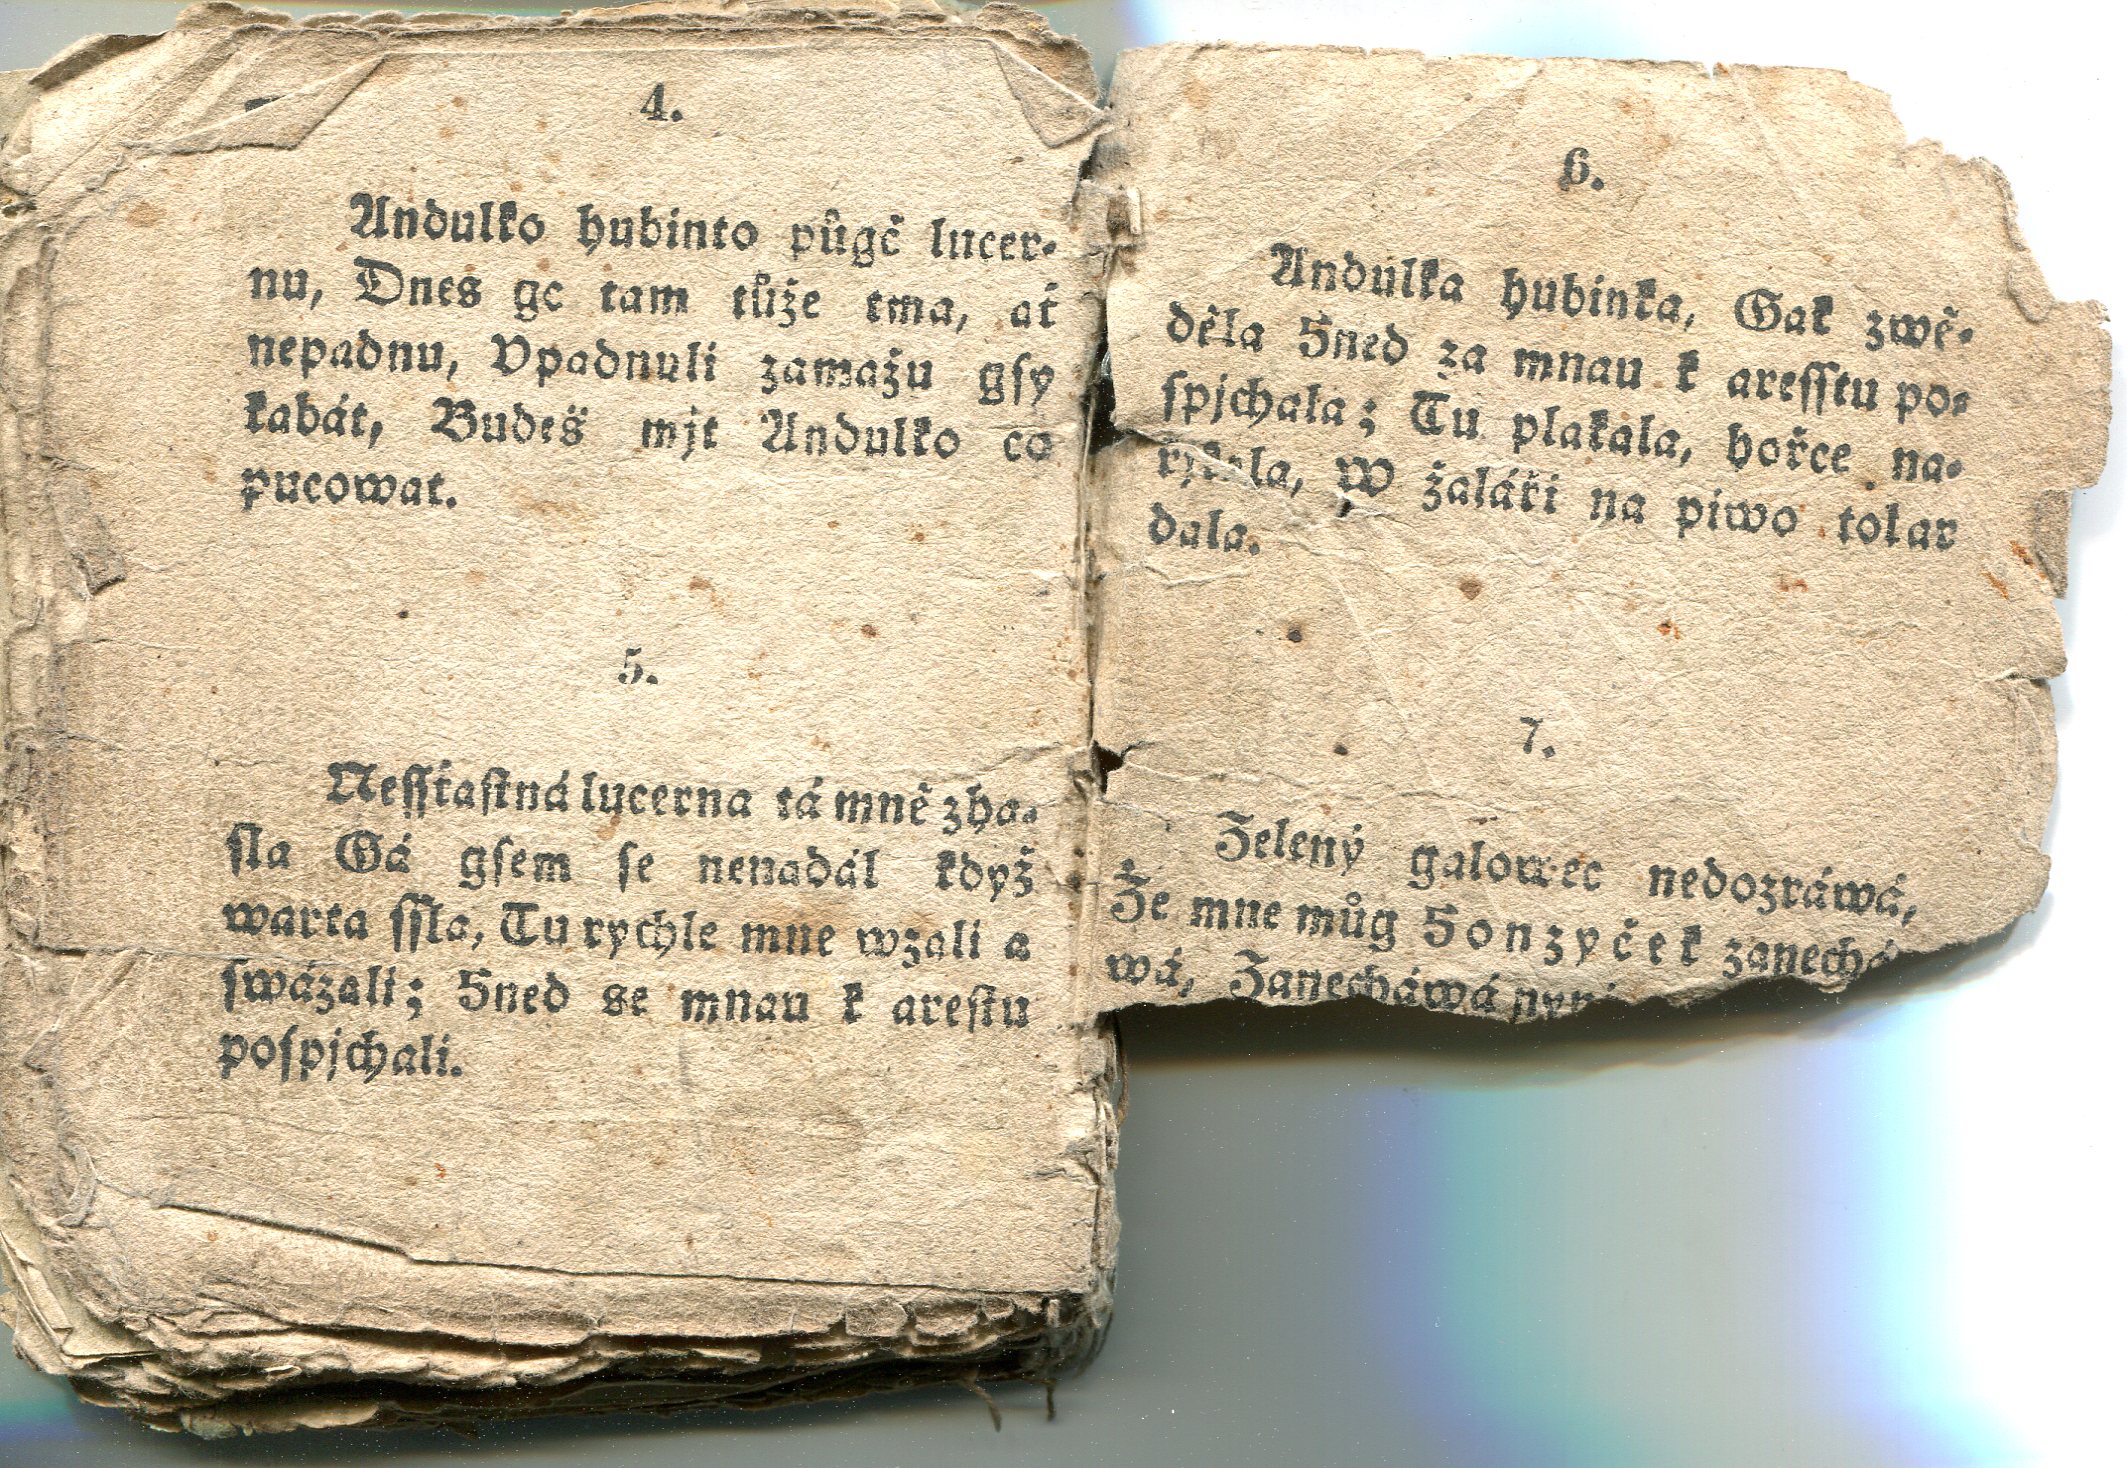 4.
Andulko hubinko půgč lucer-
nu, Dnes ge tam tůže tma, ať
nepadnu, Vpadnuli zamažu gsy
kabát, Budeš mjt Andulko co
pucowat.
5.
Nessťastná lucerna tá mně zha-
sla Gá gsem se nenadál když
warta ssla, Tu rychle mne wzali a
swázali; Hned se mnau k arestu
pospjchali.
6.
Andulka hubinka, Gak zwě-
děla Hned za mnau k aresstu po-
spjchala; Tu plakala, hořce na-
řjkala, W žaláři na piwo tolar
dala.
7.
Zelený galowec nedozráwá,
Že mne můg Honzyček zanechá
wá, Zanecháwá